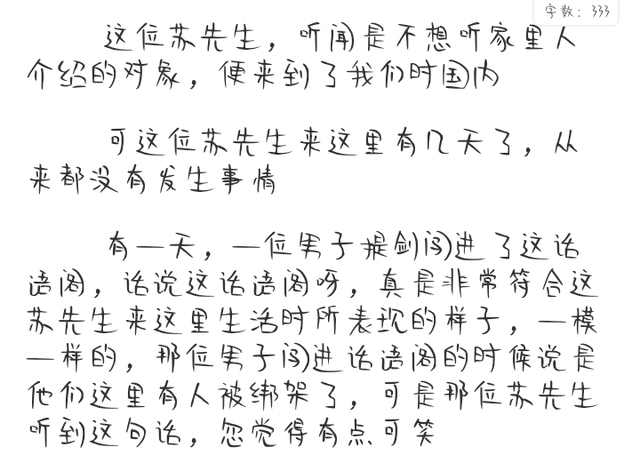 字数：333
这位苏先生，听闻是不想听家里人
介绍的对象，便来到了我们时国内
可这位苏先生来这里有几天了，从
来都没有发生事情
有一天，一位男子提剑闯进了这话
语阁，话说这话语阁呀，真是非常符合这
苏先生来这里生活时所表现的样子，一模
一样的，那位男子闯进话语阁的时候说是
他们这里有人被绑架了，可是那位苏先生
听到这句话，忽觉得有点可笑